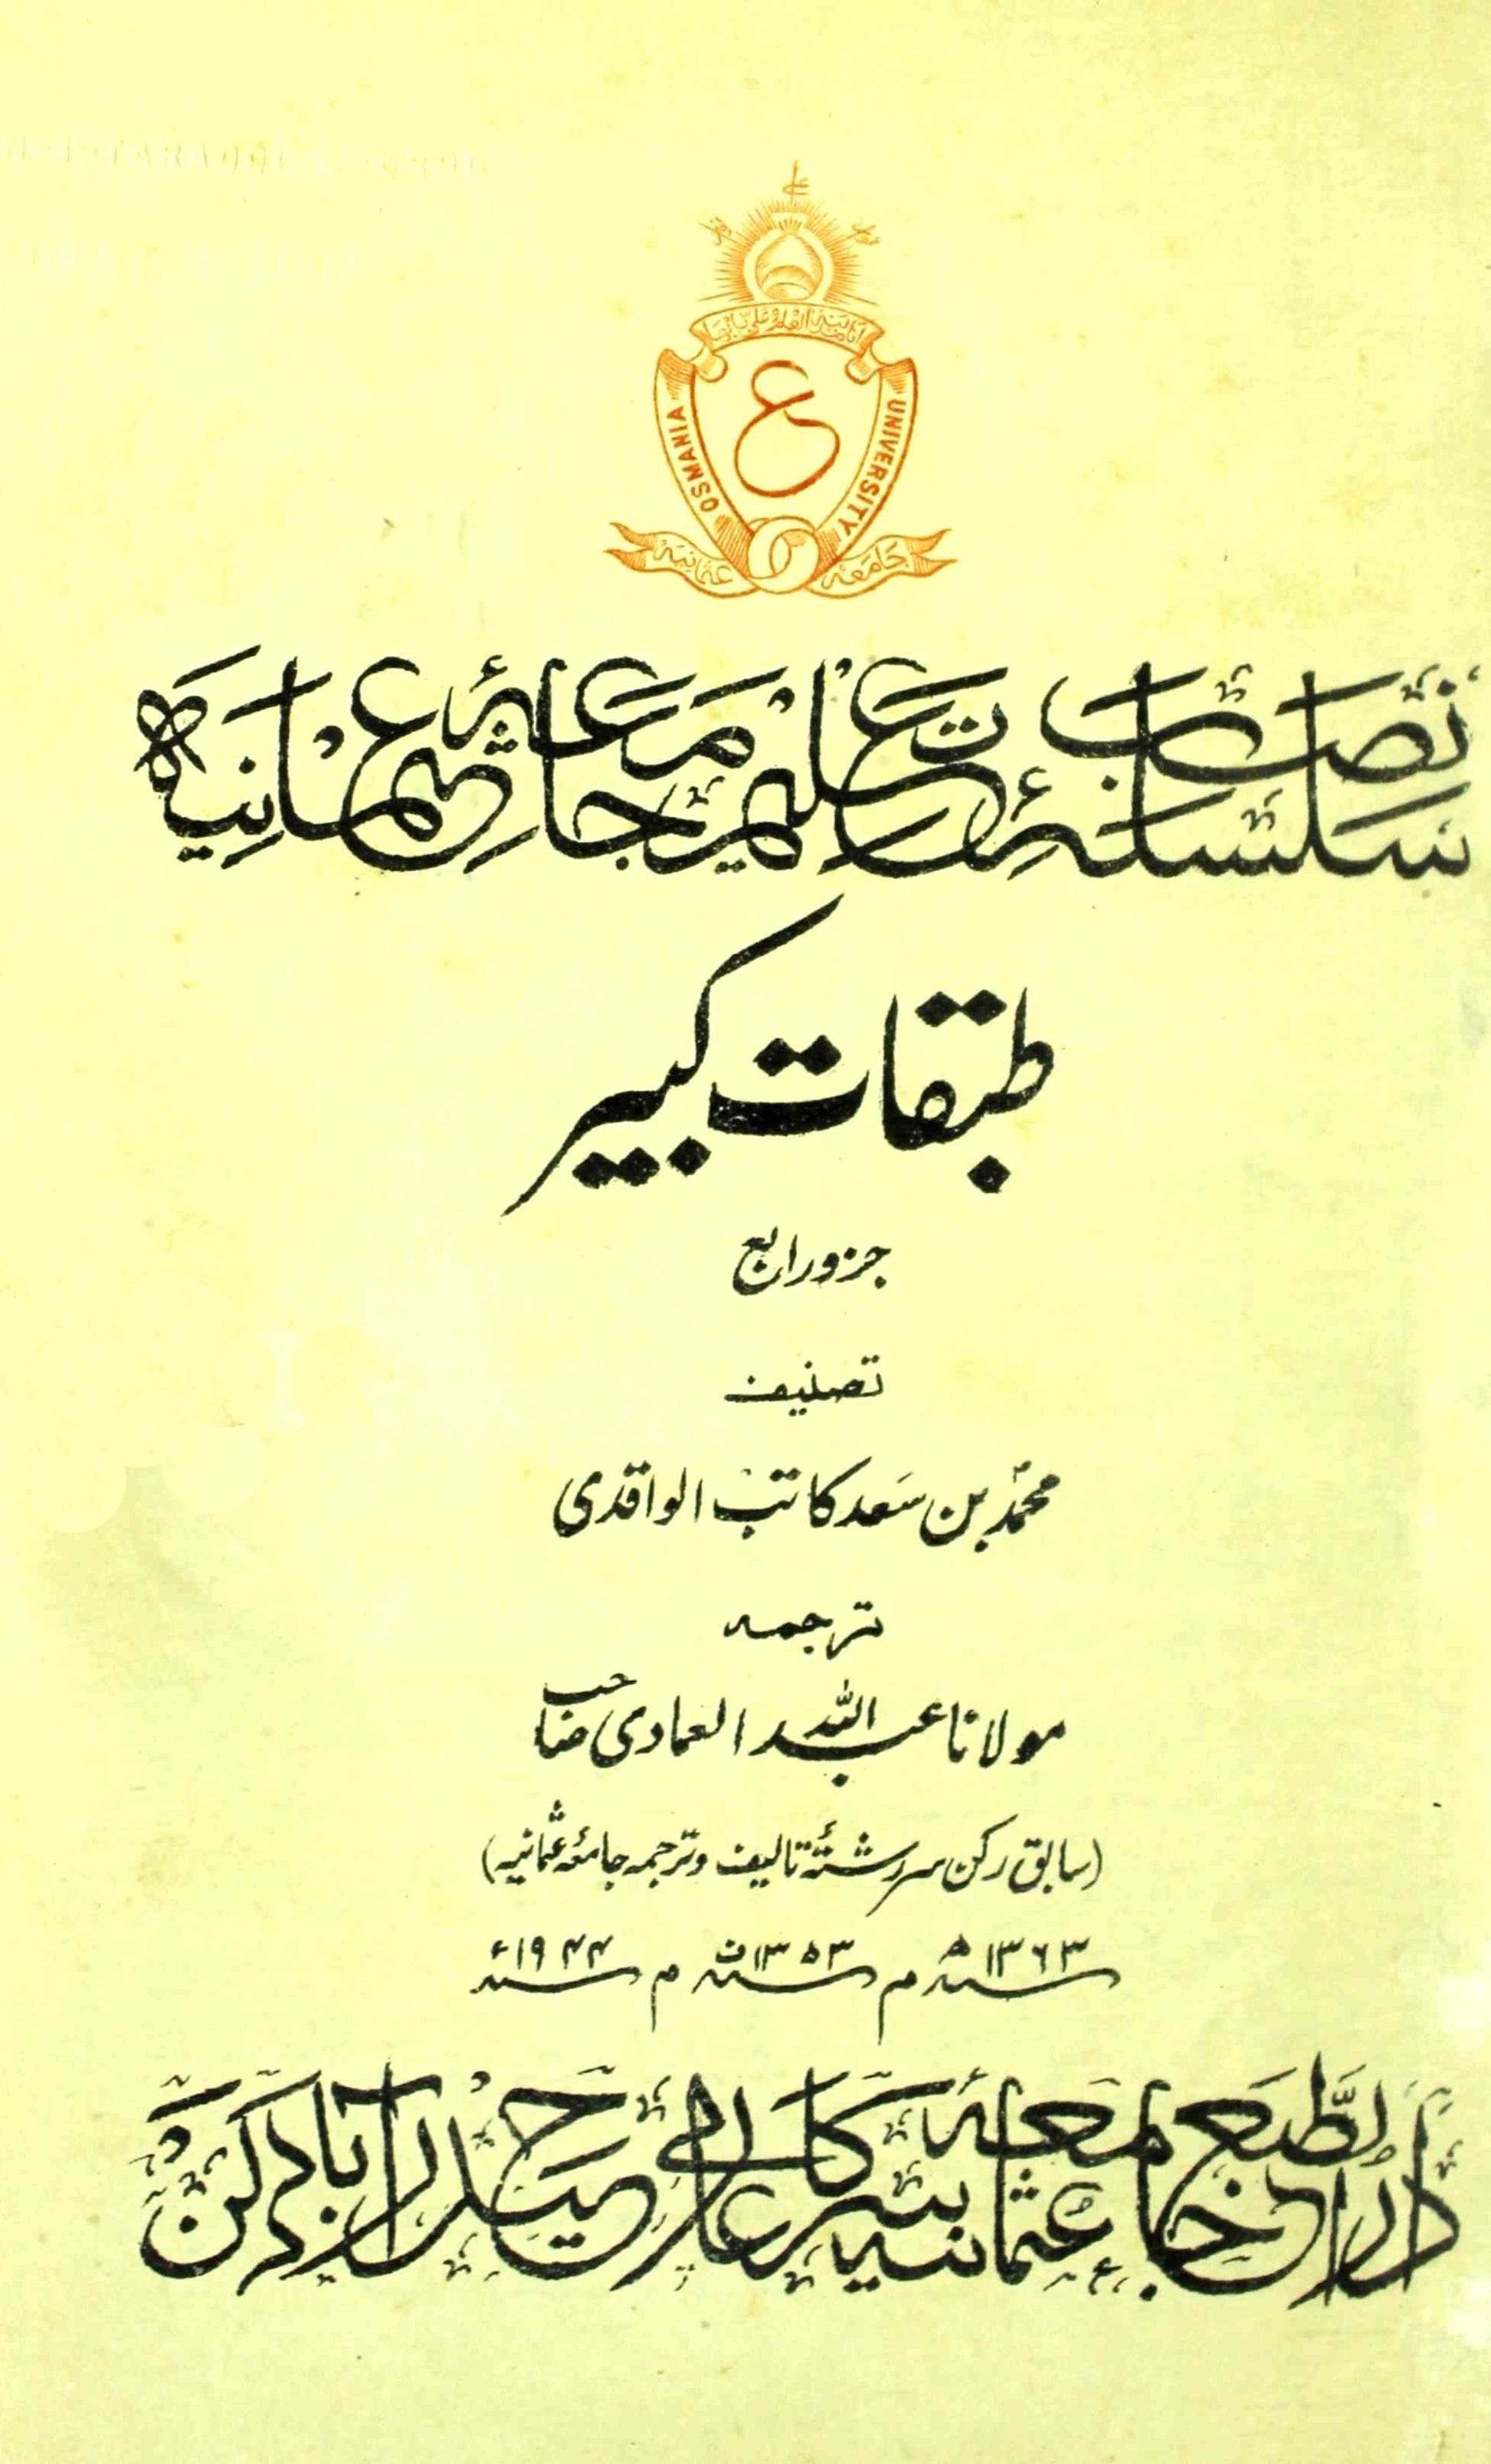 انا مدینۃ العلم و علی بابہا
OSMANIA UNIVERSITY
ع
جامعہ عثمانیہ
سلسلۂ نصاب تعلیم جامعۂ عثمانیہ
طبقات کبیر
جزو رابع
تصنیف
محمد بن سعد کاتب الواقدی
ترجمہ
مولانا عبد اللہ العمادی صاحب
(سابق رکن سررشتۂ تالیف و ترجمہ جامعۂ عثمانیہ)
۱۳۶۳ھ م ۱۳۵۳ف م ۱۹۴۴ء
دار الطبع جامعۂ عثمانیہ سرکار عالی حیدرآباد دکن